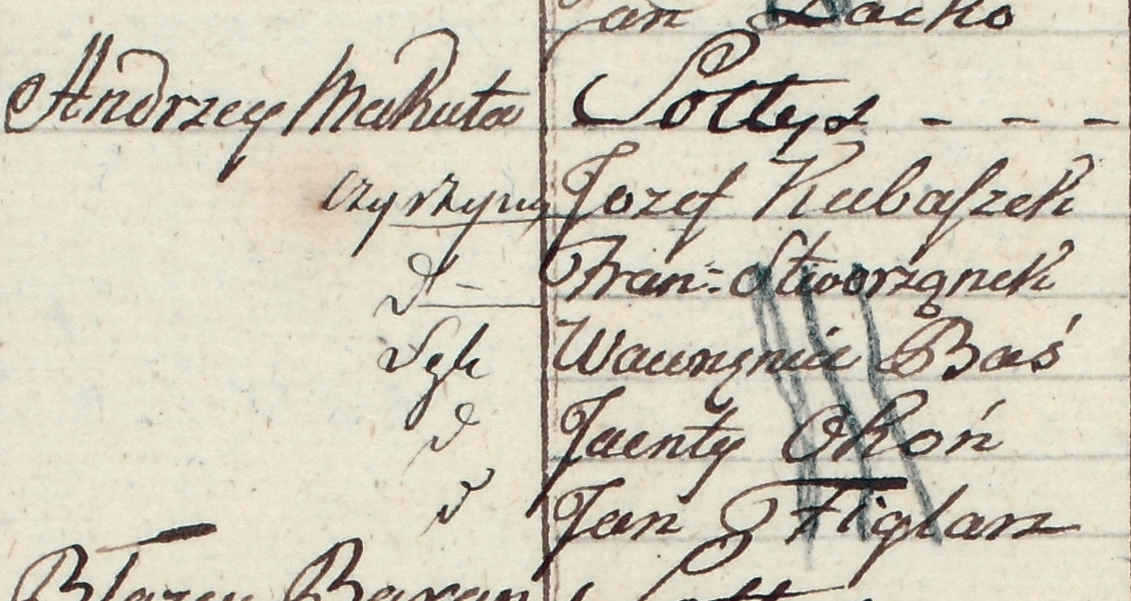 Jan Lacko
Andrzey Makuta Sołtys - - -
Czyrzyny Jozef Kubaszek
d - Fran: Stworzonek
Wawrzynic Baś
d Jacnty Okoń
d Jan Figlarz
Błazey Baran